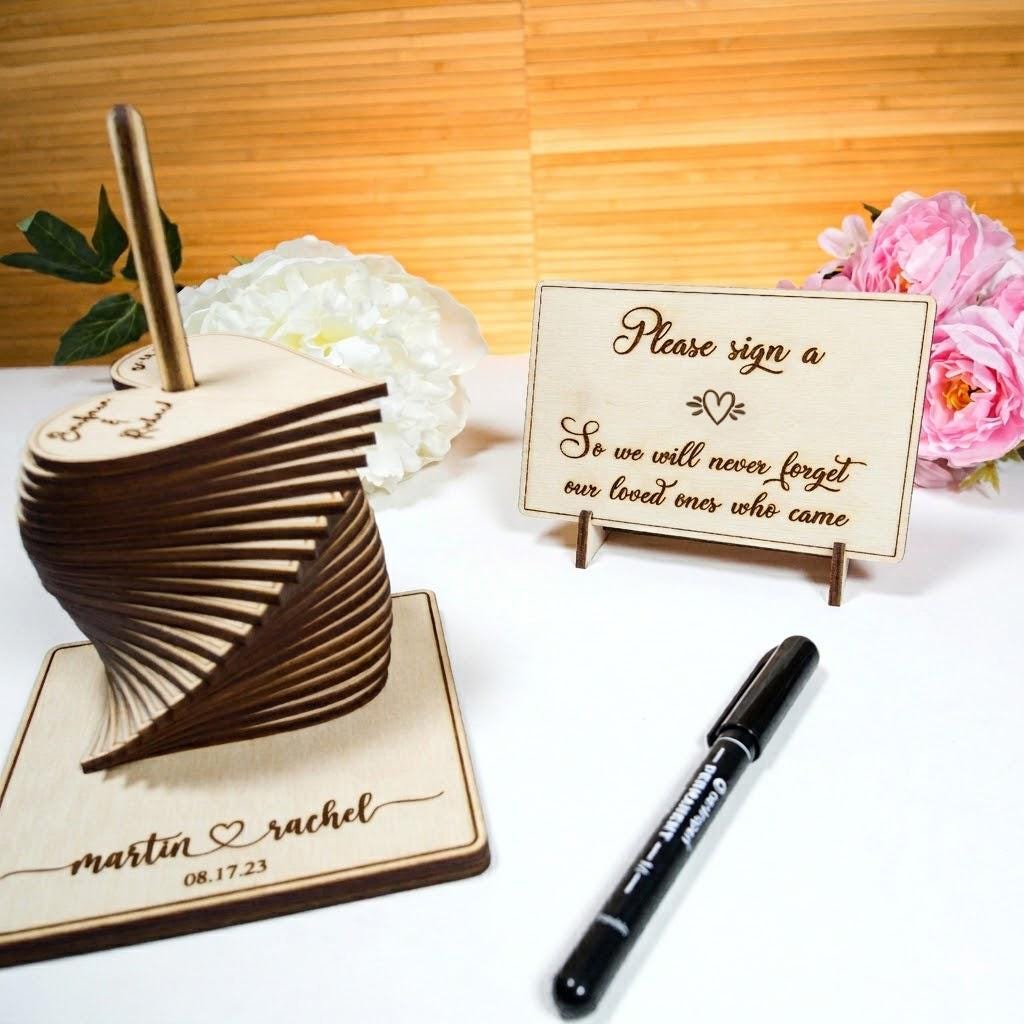 Please sign a
So we will never forget
our loved ones who came
&
martin rachel
08.17.23
PERMANENT